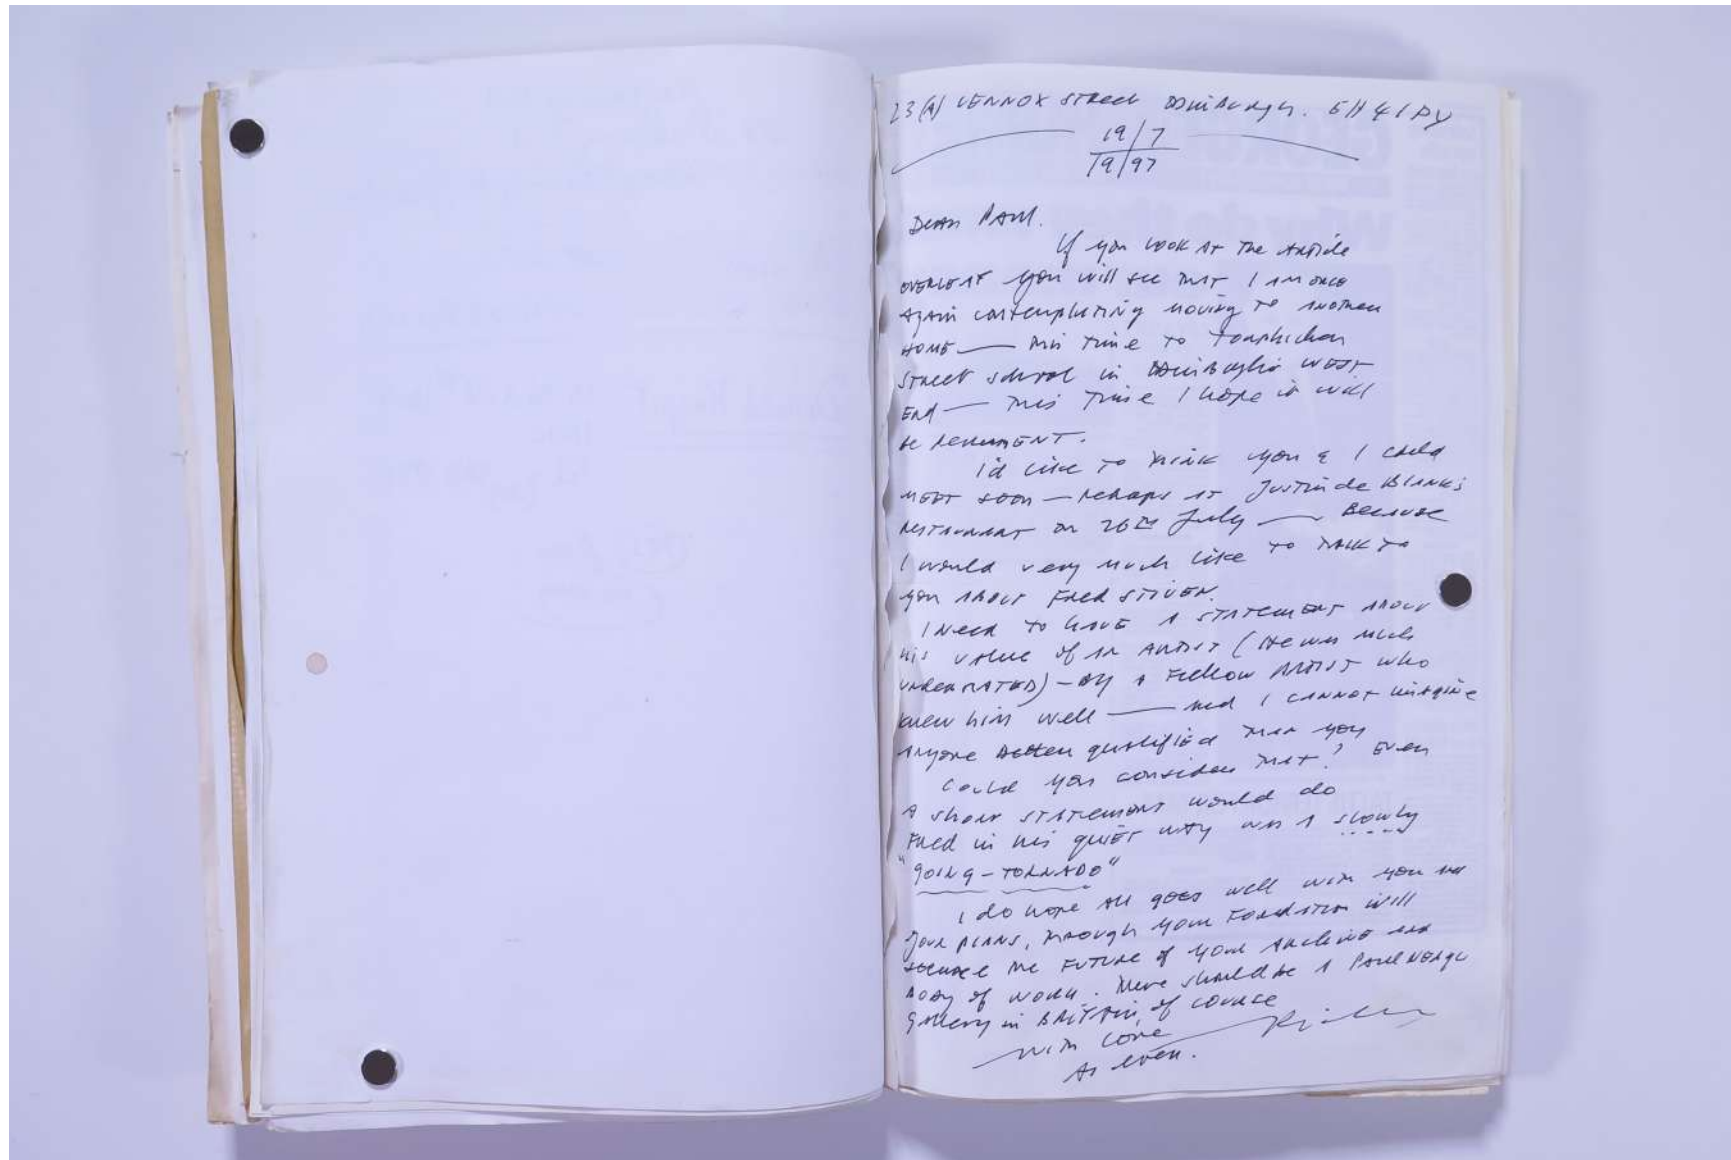 23(A) LENNOX STREET Edinburgh. EH4 1PY
19/7
19/97
Dear Paul.
If you look at the Article
overleaf you will see that I am once
Again contemplating moving to another
HOME — this time to Torphichen
Street School in Edinburgh's West
End — this time I hope it will
be permanent.
I'd like to think you & I could
meet soon — perhaps at Justin de Blank's
restaurant on 26th July — Because
I would very much like to talk to
you about Fred Stiven.
I need to have a statement about
his value of an Artist (He was much
underrated) – By a fellow Artist who
knew him well — and I cannot imagine
anyone better qualified than you
Could you consider that? Even
A short statement would do
Fred in his quiet way was a slowly
"going-tornado"
I do hope all goes well with you and
your plans, through your Foundation will
secure the future of your Archive and
body of work. There should be a Paul Neagu
gallery in Britain, of course
with love
As ever.